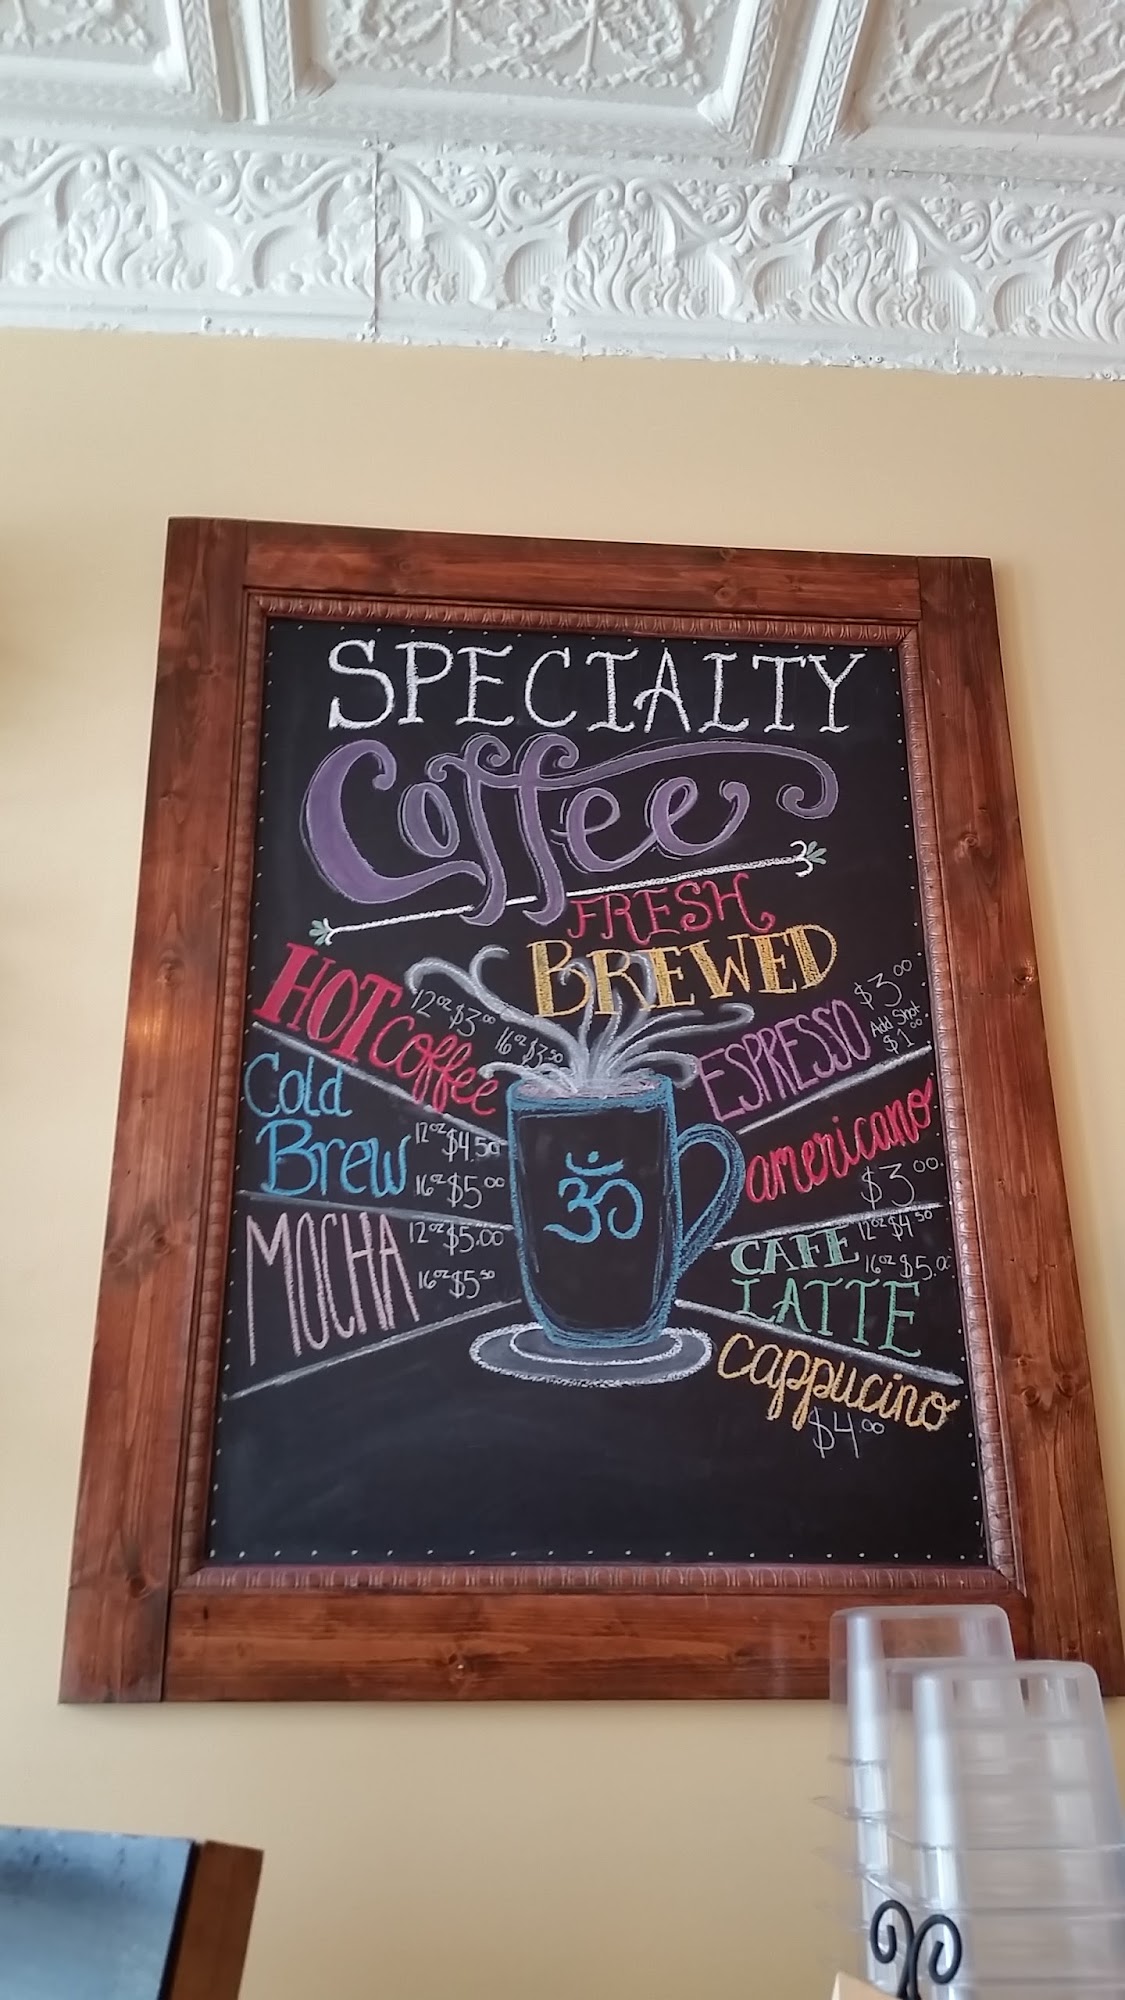 SPECIALTY
Coffee
FRESH
BREWED
HOT Coffee
12oz $3.00
16oz $3.50
Cold
Brew
12oz $4.50
16oz $5.00
MOCHA
12oz $5.00
16oz $5.50
ॐ
ESPRESSO
$3.00
Add Shot
$1.00
americano
$3.00
CAFE
LATTE
12oz $4.50
16oz $5.00
Cappucino
$4.00